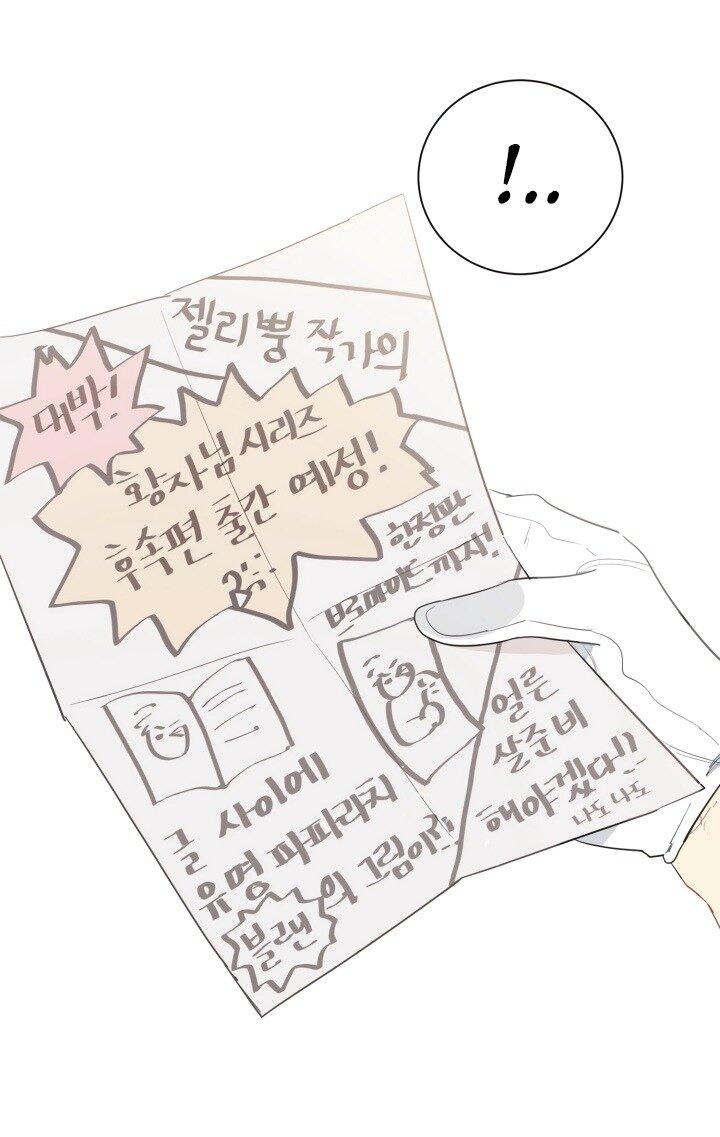 !..
젤리뿡 작가의
대박!
황자님 시리즈
후속편 출간 예정!
한정판
브로마이드까지!
글 사이에
유명 파파라치
블랜의 그림이?!
얼른
살 준비
해야겠다!
나도 나도